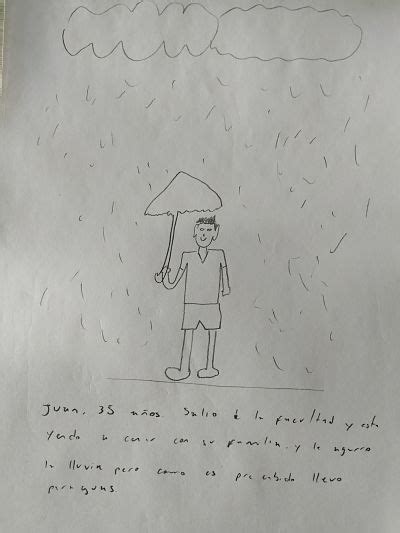 Juan, 35 años. Salio d la facultad y esta
yendo a comer con su familia. y le agarro
la lluvia pero como es precabido llevo
paraguas.